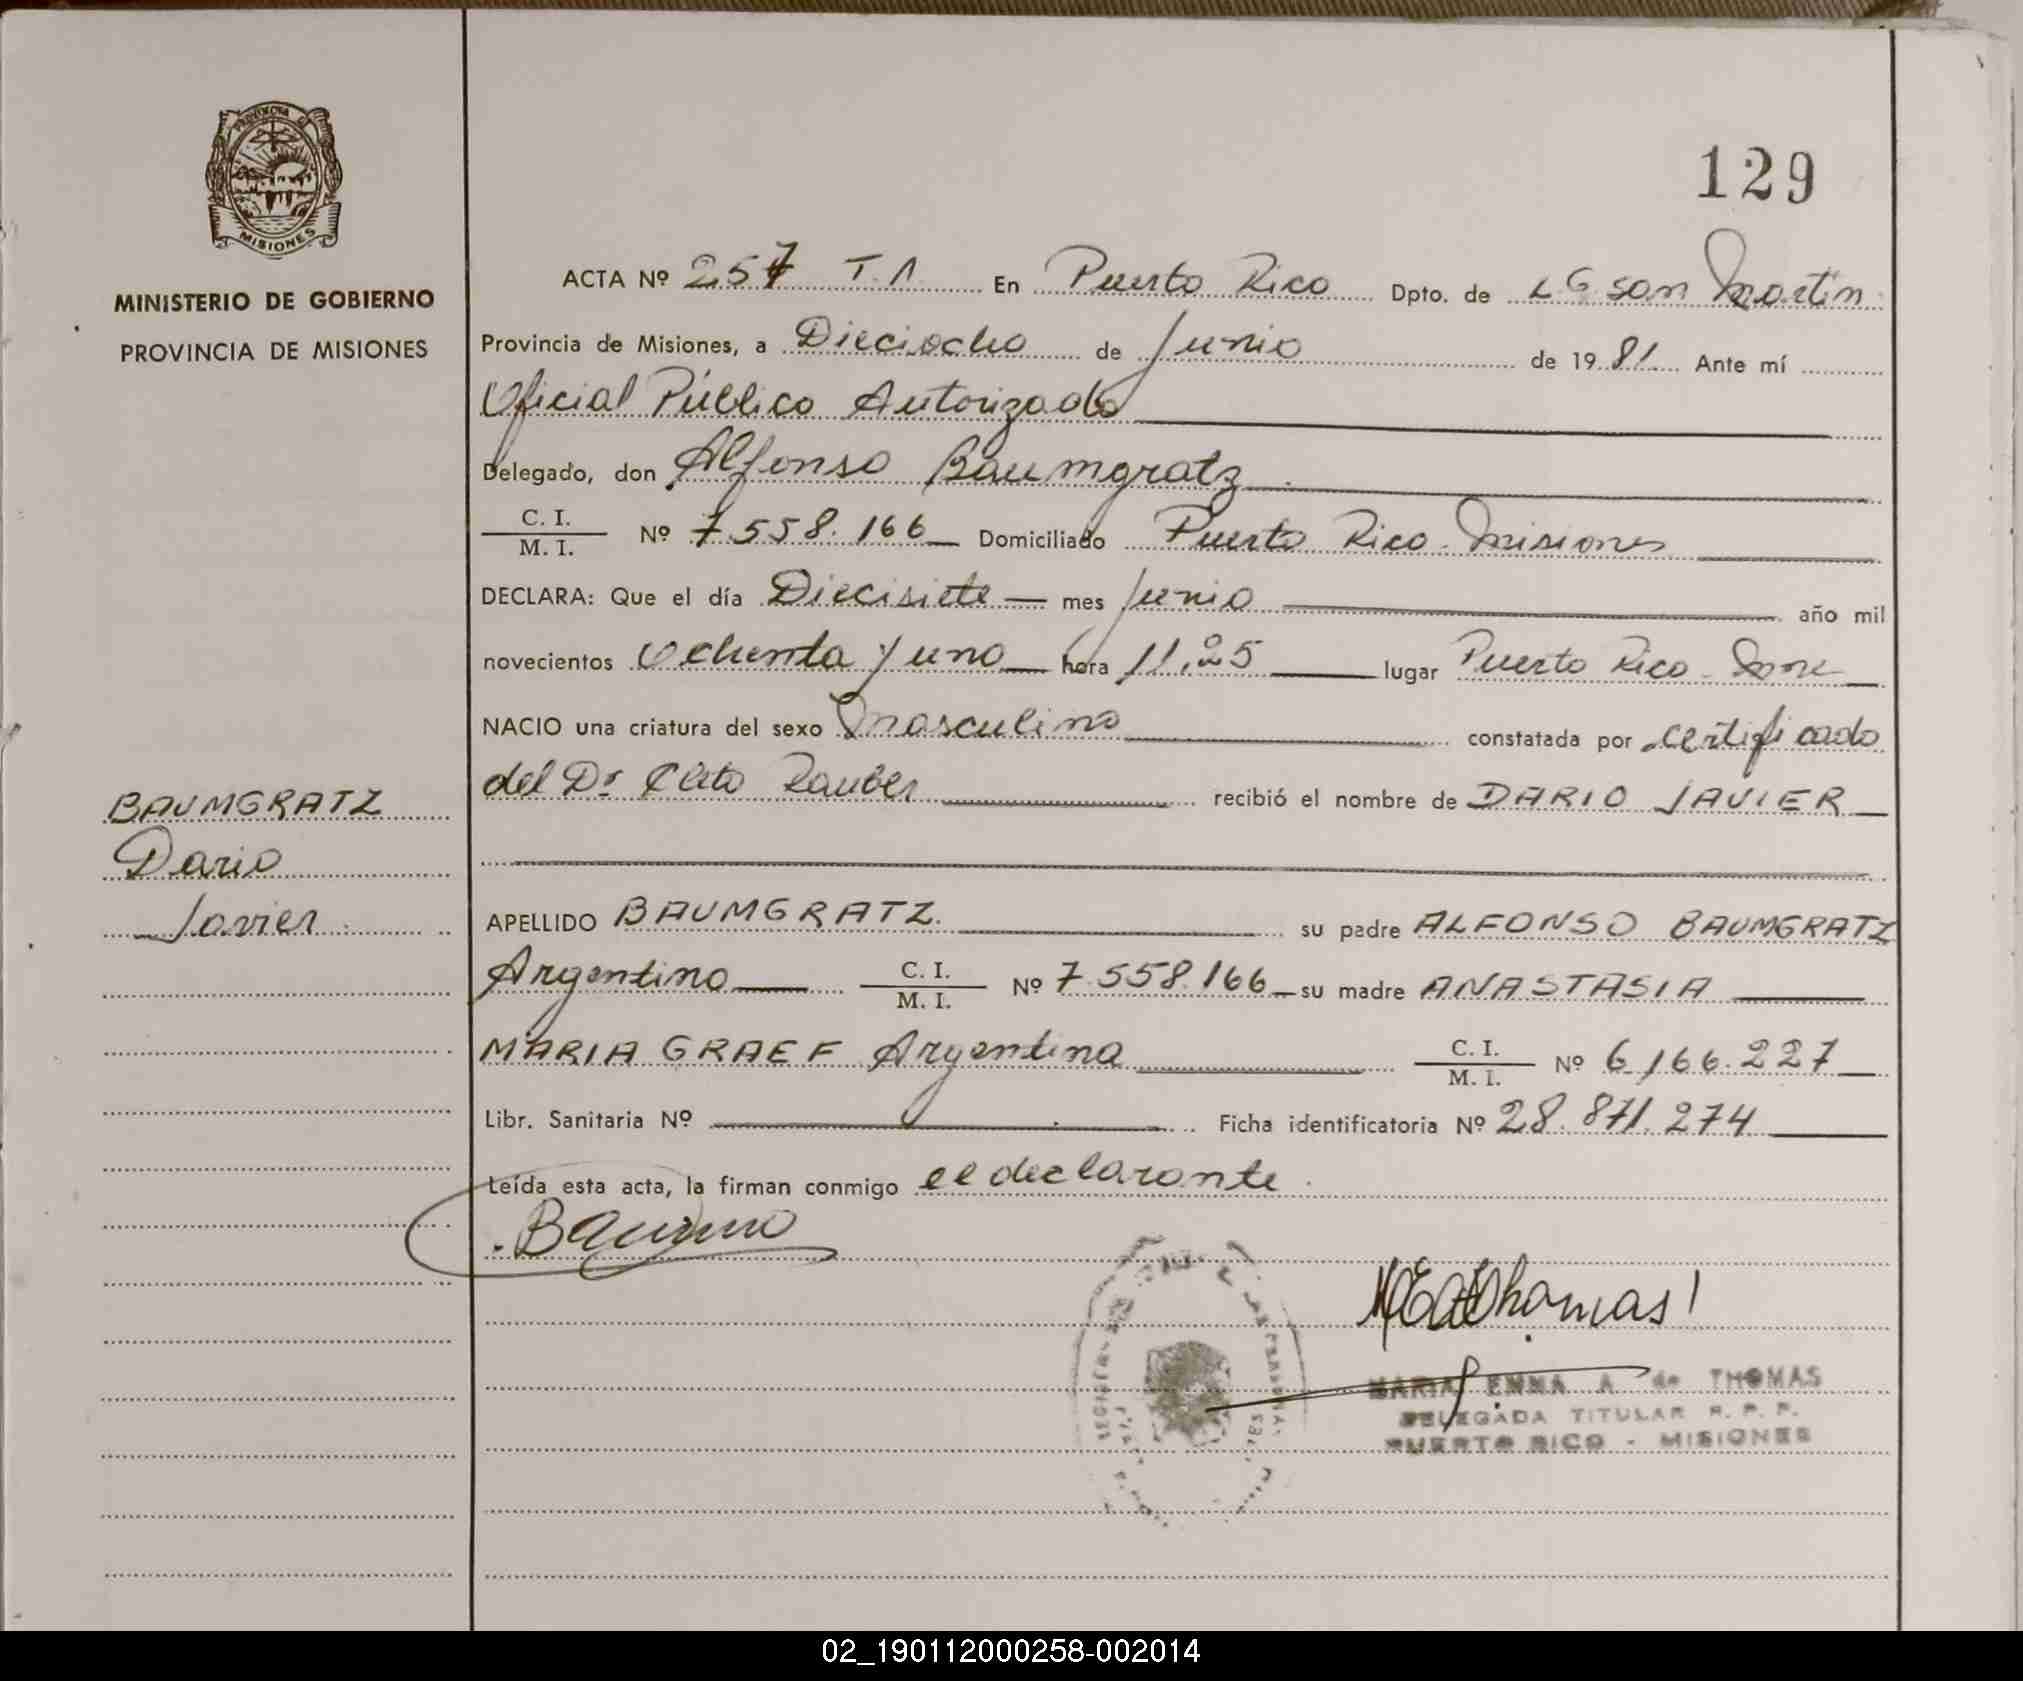 PROVINCIA DE
MISIONES
MINISTERIO DE GOBIERNO
PROVINCIA DE MISIONES
BAUMGRATZ
Dario
Javier
129
ACTA Nº 257 T.A. En Puerto Rico Dpto. de LG San Martin
Provincia de Misiones, a Dieciocho de Junio de 1981. Ante mí
Oficial Público Autorizado
Delegado, don Alfonso Baumgratz
C. I. / M. I. Nº 7.558.166 Domiciliado Puerto Rico - Misiones
DECLARA: Que el día Diecisiete mes Junio año mil
novecientos Ochenta y uno hora 11,25 lugar Puerto Rico - Mnes
NACIO una criatura del sexo Masculino constatada por certificado
del Dr Cleto Rauber recibió el nombre de DARIO JAVIER
APELLIDO BAUMGRATZ. su padre ALFONSO BAUMGRATZ
Argentino C. I. / M. I. Nº 7.558.166 su madre ANASTASIA
MARIA GRAEF Argentina C. I. / M. I. Nº 6.166.227
Libr. Sanitaria Nº Ficha identificatoria Nº 28.871.274
Leída esta acta, la firman conmigo el declarante.
MARIA EMMA A de THOMAS
DELEGADA TITULAR R. P. P.
PUERTO RICO - MISIONES
02_190112000258-002014